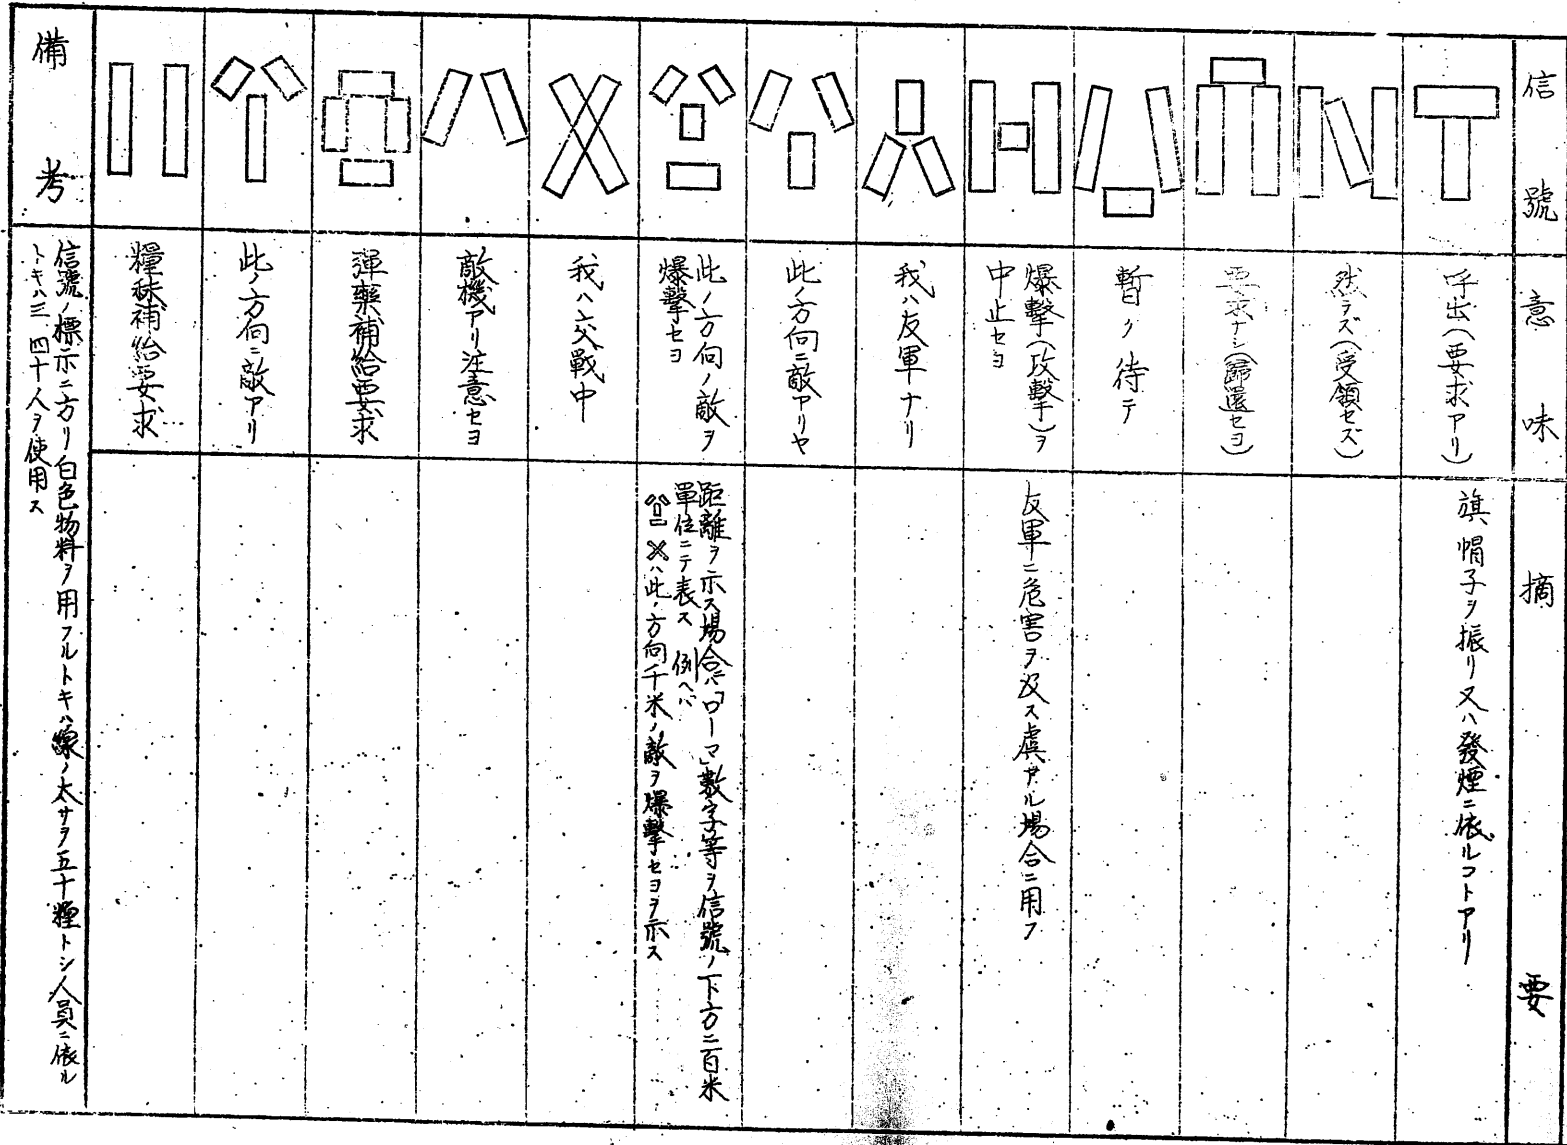 信號
意味
摘要
呼出(要求アリ)
旗、帽子ヲ振リ又ハ發煙ニ依ルコトアリ
然ラズ(受領セズ)
要求ナシ(歸還セヨ)
暫ク待テ
爆擊(攻擊)ヲ
中止セヨ
友軍ニ危害ヲ及ス虞アル場合ニ用フ
我ハ友軍ナリ
此ノ方向ニ敵アリヤ
此ノ方向ノ敵ヲ
爆擊セヨ
距離ヲ示ス場合ニハ「ローマ」數字等ヲ信號ノ下方ニ百米
單位ニテ表ス 例ヘバ
X ハ此ノ方向千米ノ敵ヲ爆擊セヨヲ示ス
我ハ交戰中
敵機アリ注意セヨ
彈藥補給要求
此ノ方向ニ敵アリ
糧秣補給要求
備考
信號ノ標示ニ方リ白色物料ヲ用フルトキハ線ノ太サヲ五十糎トシ人員ニ依ル
トキハ三、四十人ヲ使用ス